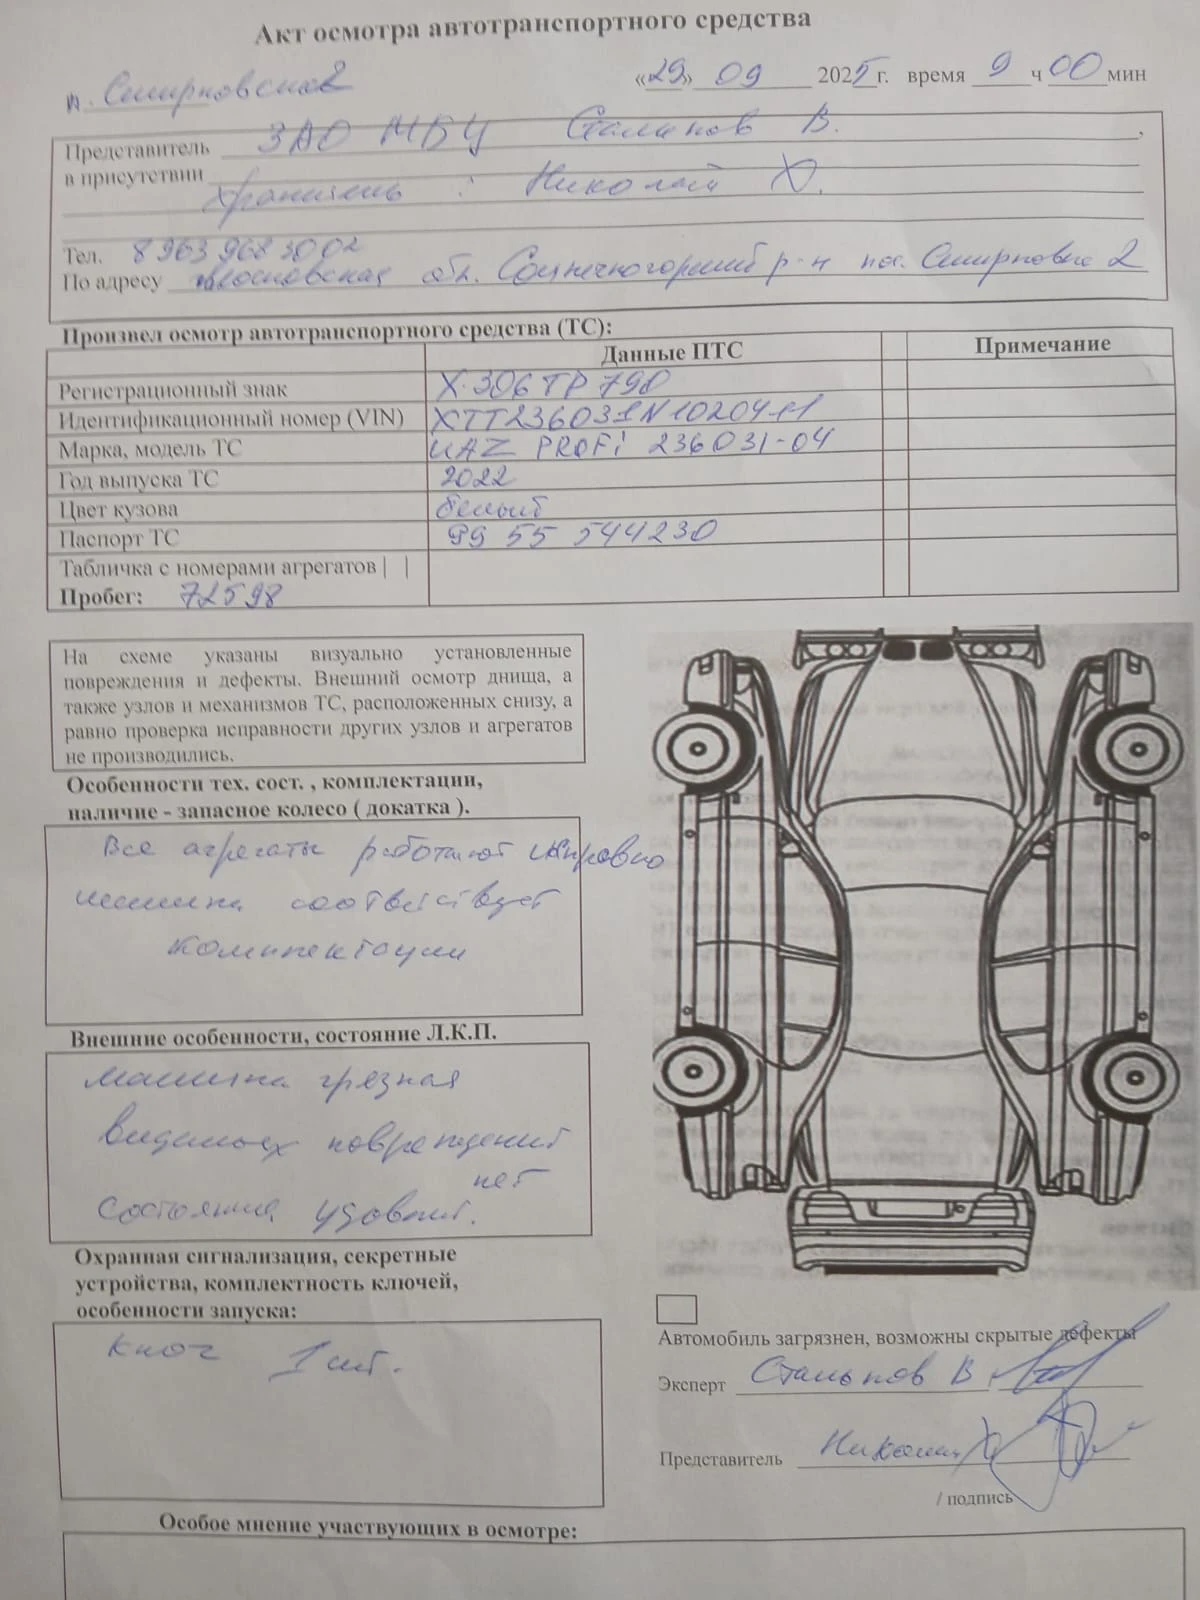 Акт осмотра автотранспортного средства
п. Смирновское 2 «29» 09 2025 г. время 9 ч 00 мин
Представитель ЗАО МБЦ Стальнов В.
в присутствии
Хранитель : Николай Х.
Тел. 8 963 968 30 02
По адресу Московская обл. Солнечногорский р-н пос. Смирновка 2
Произвел осмотр автотранспортного средства (ТС):
Данные ПТС Примечание
Регистрационный знак Х 306 ТР 790
Идентификационный номер (VIN)
Марка, модель ТС UAZ PROFi 236031-04
Год выпуска ТС 2022
Цвет кузова белый
Паспорт ТС 99 55 544230
Табличка с номерами агрегатов | |
Пробег: 72598
На схеме указаны визуально установленные
повреждения и дефекты. Внешний осмотр днища, а
также узлов и механизмов ТС, расположенных снизу, а
равно проверка исправности других узлов и агрегатов
не производились.
Особенности тех. сост. , комплектации,
наличие - запасное колесо ( докатка ).
Все агрегаты работают исправно
машина соответствует
комплектации
Внешние особенности, состояние Л.К.П.
машина грязная
видимых повреждений
нет
состояние удовлет.
Охранная сигнализация, секретные
устройства, комплектность ключей,
особенности запуска:
Ключ 1 шт.
Автомобиль загрязнен, возможны скрытые дефекты
Эксперт Стальнов В
Представитель Николай Х
/ подпись
Особое мнение участвующих в осмотре: